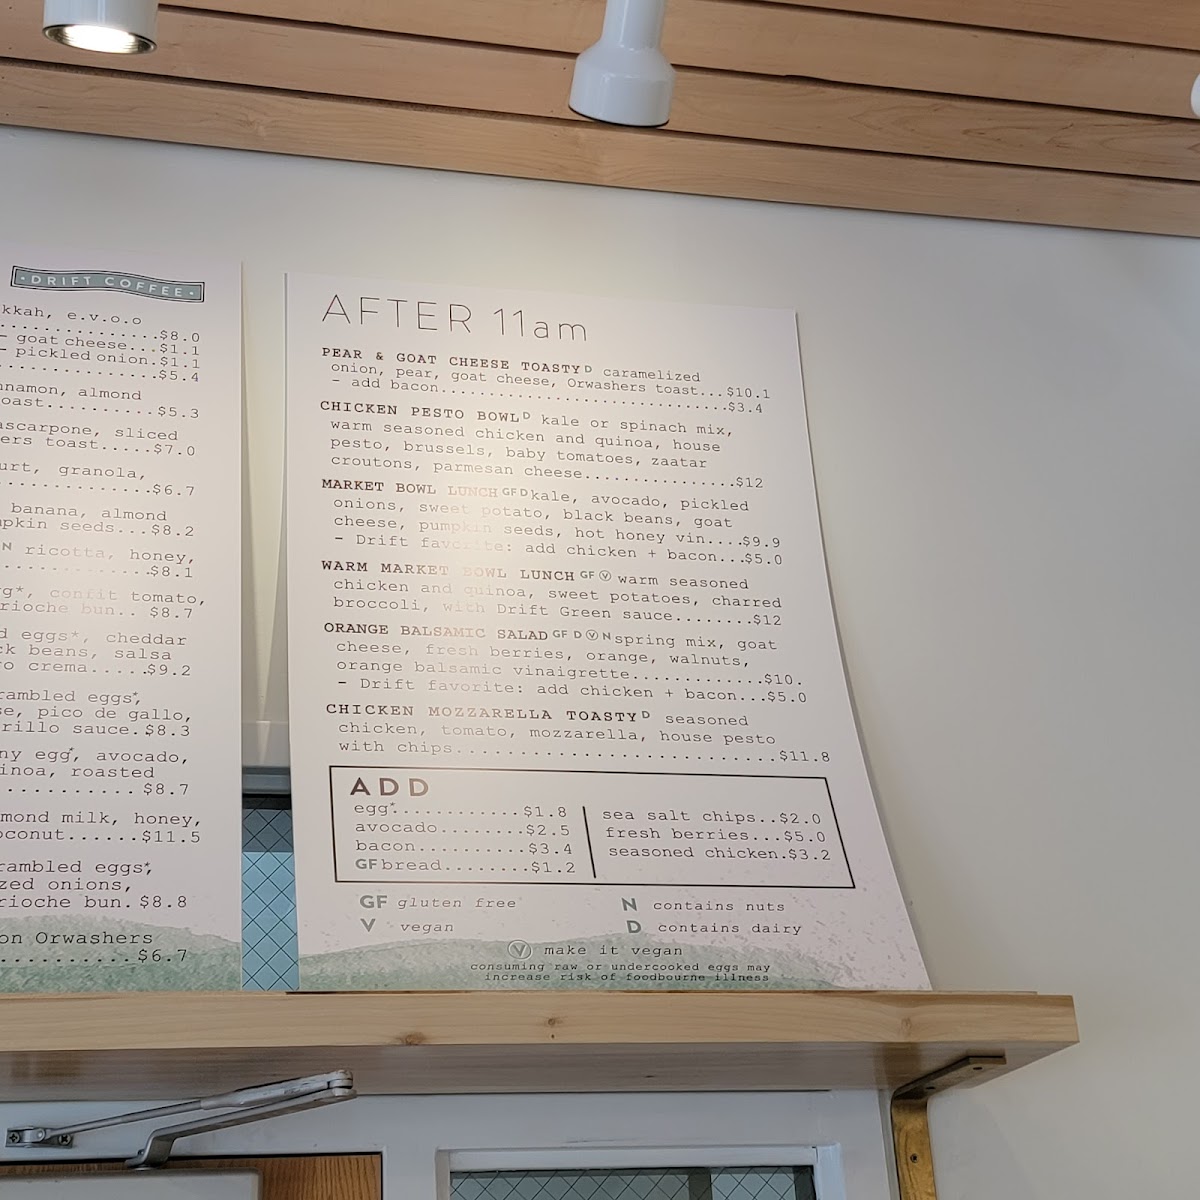 · DRIFT COFFEE ·
kkah, e.v.o.o
...............$8.0
- goat cheese...$1.1
- pickled onion.$1.1
...............$5.4
nnamon, almond
oast..........$5.3
ascarpone, sliced
ers toast.....$7.0
urt, granola,
..............$6.7
banana, almond
pkin seeds...$8.2
N ricotta, honey,
..............$8.1
gg*, confit tomato,
rioche bun.. $8.7
d eggs*, cheddar
ck beans, salsa
ro crema.....$9.2
rambled eggs*,
se, pico de gallo,
rillo sauce.$8.3
ny egg*, avocado,
inoa, roasted
........... $8.7
lmond milk, honey,
oconut......$11.5
rambled eggs*,
zed onions,
rioche bun. $8.8
on Orwashers
..........$6.7
AFTER 11am
PEAR & GOAT CHEESE TOASTY D caramelized
onion, pear, goat cheese, Orwashers toast...$10.1
- add bacon..............................$3.4
CHICKEN PESTO BOWL D kale or spinach mix,
warm seasoned chicken and quinoa, house
pesto, brussels, baby tomatoes, zaatar
croutons, parmesan cheese................$12
MARKET BOWL LUNCH GF D kale, avocado, pickled
onions, sweet potato, black beans, goat
cheese, pumpkin seeds, hot honey vin....$9.9
- Drift favorite: add chicken + bacon...$5.0
WARM MARKET BOWL LUNCH GF Ⓥ warm seasoned
chicken and quinoa, sweet potatoes, charred
broccoli, with Drift Green sauce........$12
ORANGE BALSAMIC SALAD GF D Ⓥ N spring mix, goat
cheese, fresh berries, orange, walnuts,
orange balsamic vinaigrette.............$10.
- Drift favorite: add chicken + bacon...$5.0
CHICKEN MOZZARELLA TOASTY D seasoned
chicken, tomato, mozzarella, house pesto
with chips..............................$11.8
ADD
egg*............$1.8
avocado........$2.5
bacon..........$3.4
GF bread........$1.2
sea salt chips..$2.0
fresh berries...$5.0
seasoned chicken.$3.2
GF gluten free
V vegan
N contains nuts
D contains dairy
Ⓥ make it vegan
consuming raw or undercooked eggs may
increase risk of foodbourne illness